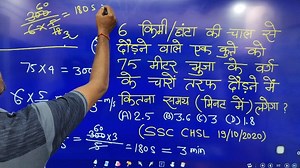 60
300 = 180 s
6 × 5/18
6 किमी/घंटा की चाल से
दौड़ने वाले एक कुत्ते को
75 मीटर भुजा के वर्ग
के चारों तरफ दौड़ने में
कितना समय (मिनट में) लगेगा?
(A) 2.5 (B) 3.6 (C) 3 (D) 1.8
(SSC CHSL 19/10/2020)
75 × 4 = 300
6 × 5
60
300 × 3
5
= 180 s = 3 min